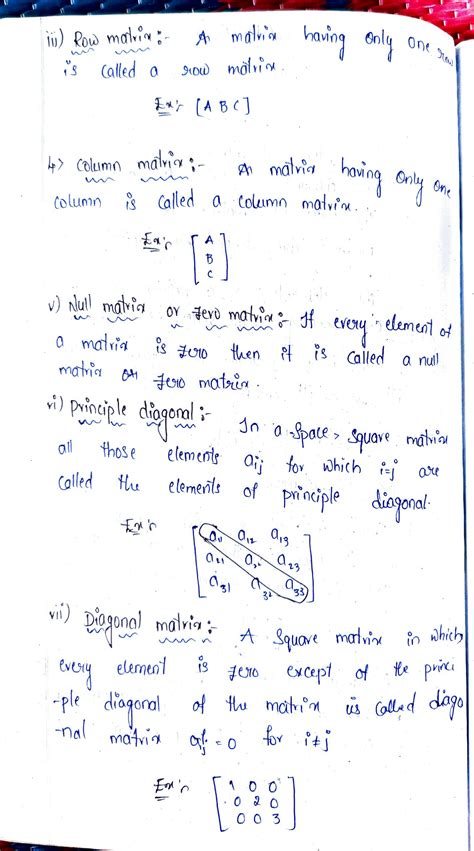 iii) Row matrix :- A matrix having only one row
is called a row matrix.
Ex:- [A B C]
4> Column matrix :- A matrix having only one
column is called a column matrix.
Ex:- [A
B
C]
v) Null matrix or zero matrix :- If every element of
a matrix is zero then it is called a null
matrix or zero matrix.
vi) principle diagonal :- In a space, square matrix
all those elements aij for which i=j are
called the elements of principle diagonal.
Ex:-
[a11 a12 a13
a21 a22 a23
a31 a32 a33]
vii) Diagonal matrix :- A square matrix in which
every element is zero except of the princi
-ple diagonal of the matrix is called diago
-nal matrix aij = 0 for i≠j
Ex:- [1 0 0
0 2 0
0 0 3]